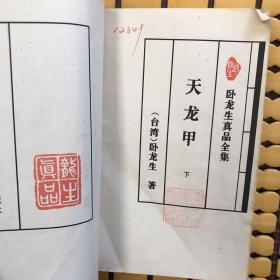 12349
卧龙生真品全集
天龙甲
下
（台湾）卧龙生 著
龍生
真品